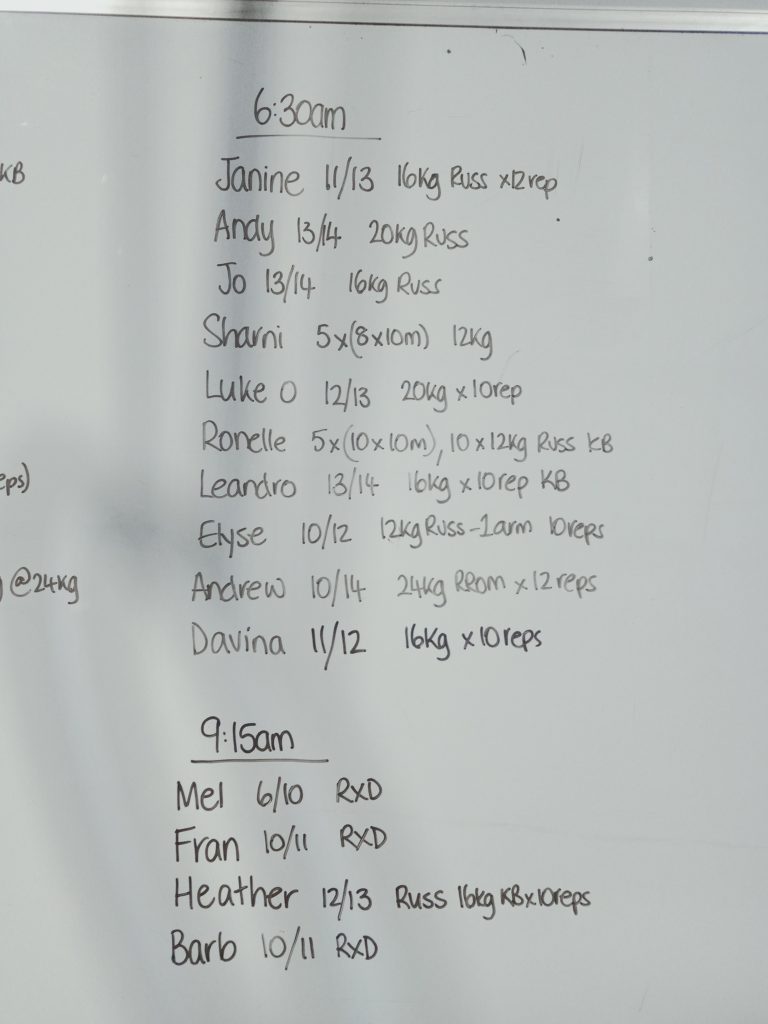 6:30am
KB
Janine 11/13 16kg Russ x12rep
Andy 13/14 20kg Russ
Jo 13/14 16kg Russ
Sharni 5x(8x10m) 12kg
Luke O 12/13 20kg x 10rep
Ronelle 5x(10x10m), 10x12kg Russ KB
eps)
Leandro 13/14 16kg x10rep KB
Elyse 10/12 12kg Russ-1arm 10reps
) @24kg
Andrew 10/14 24kg RROM x12reps
Davina 11/12 16kg x10reps
9:15am
Mel 6/10 RXD
Fran 10/11 RXD
Heather 12/13 Russ 16kg KBx10reps
Barb 10/11 RXD